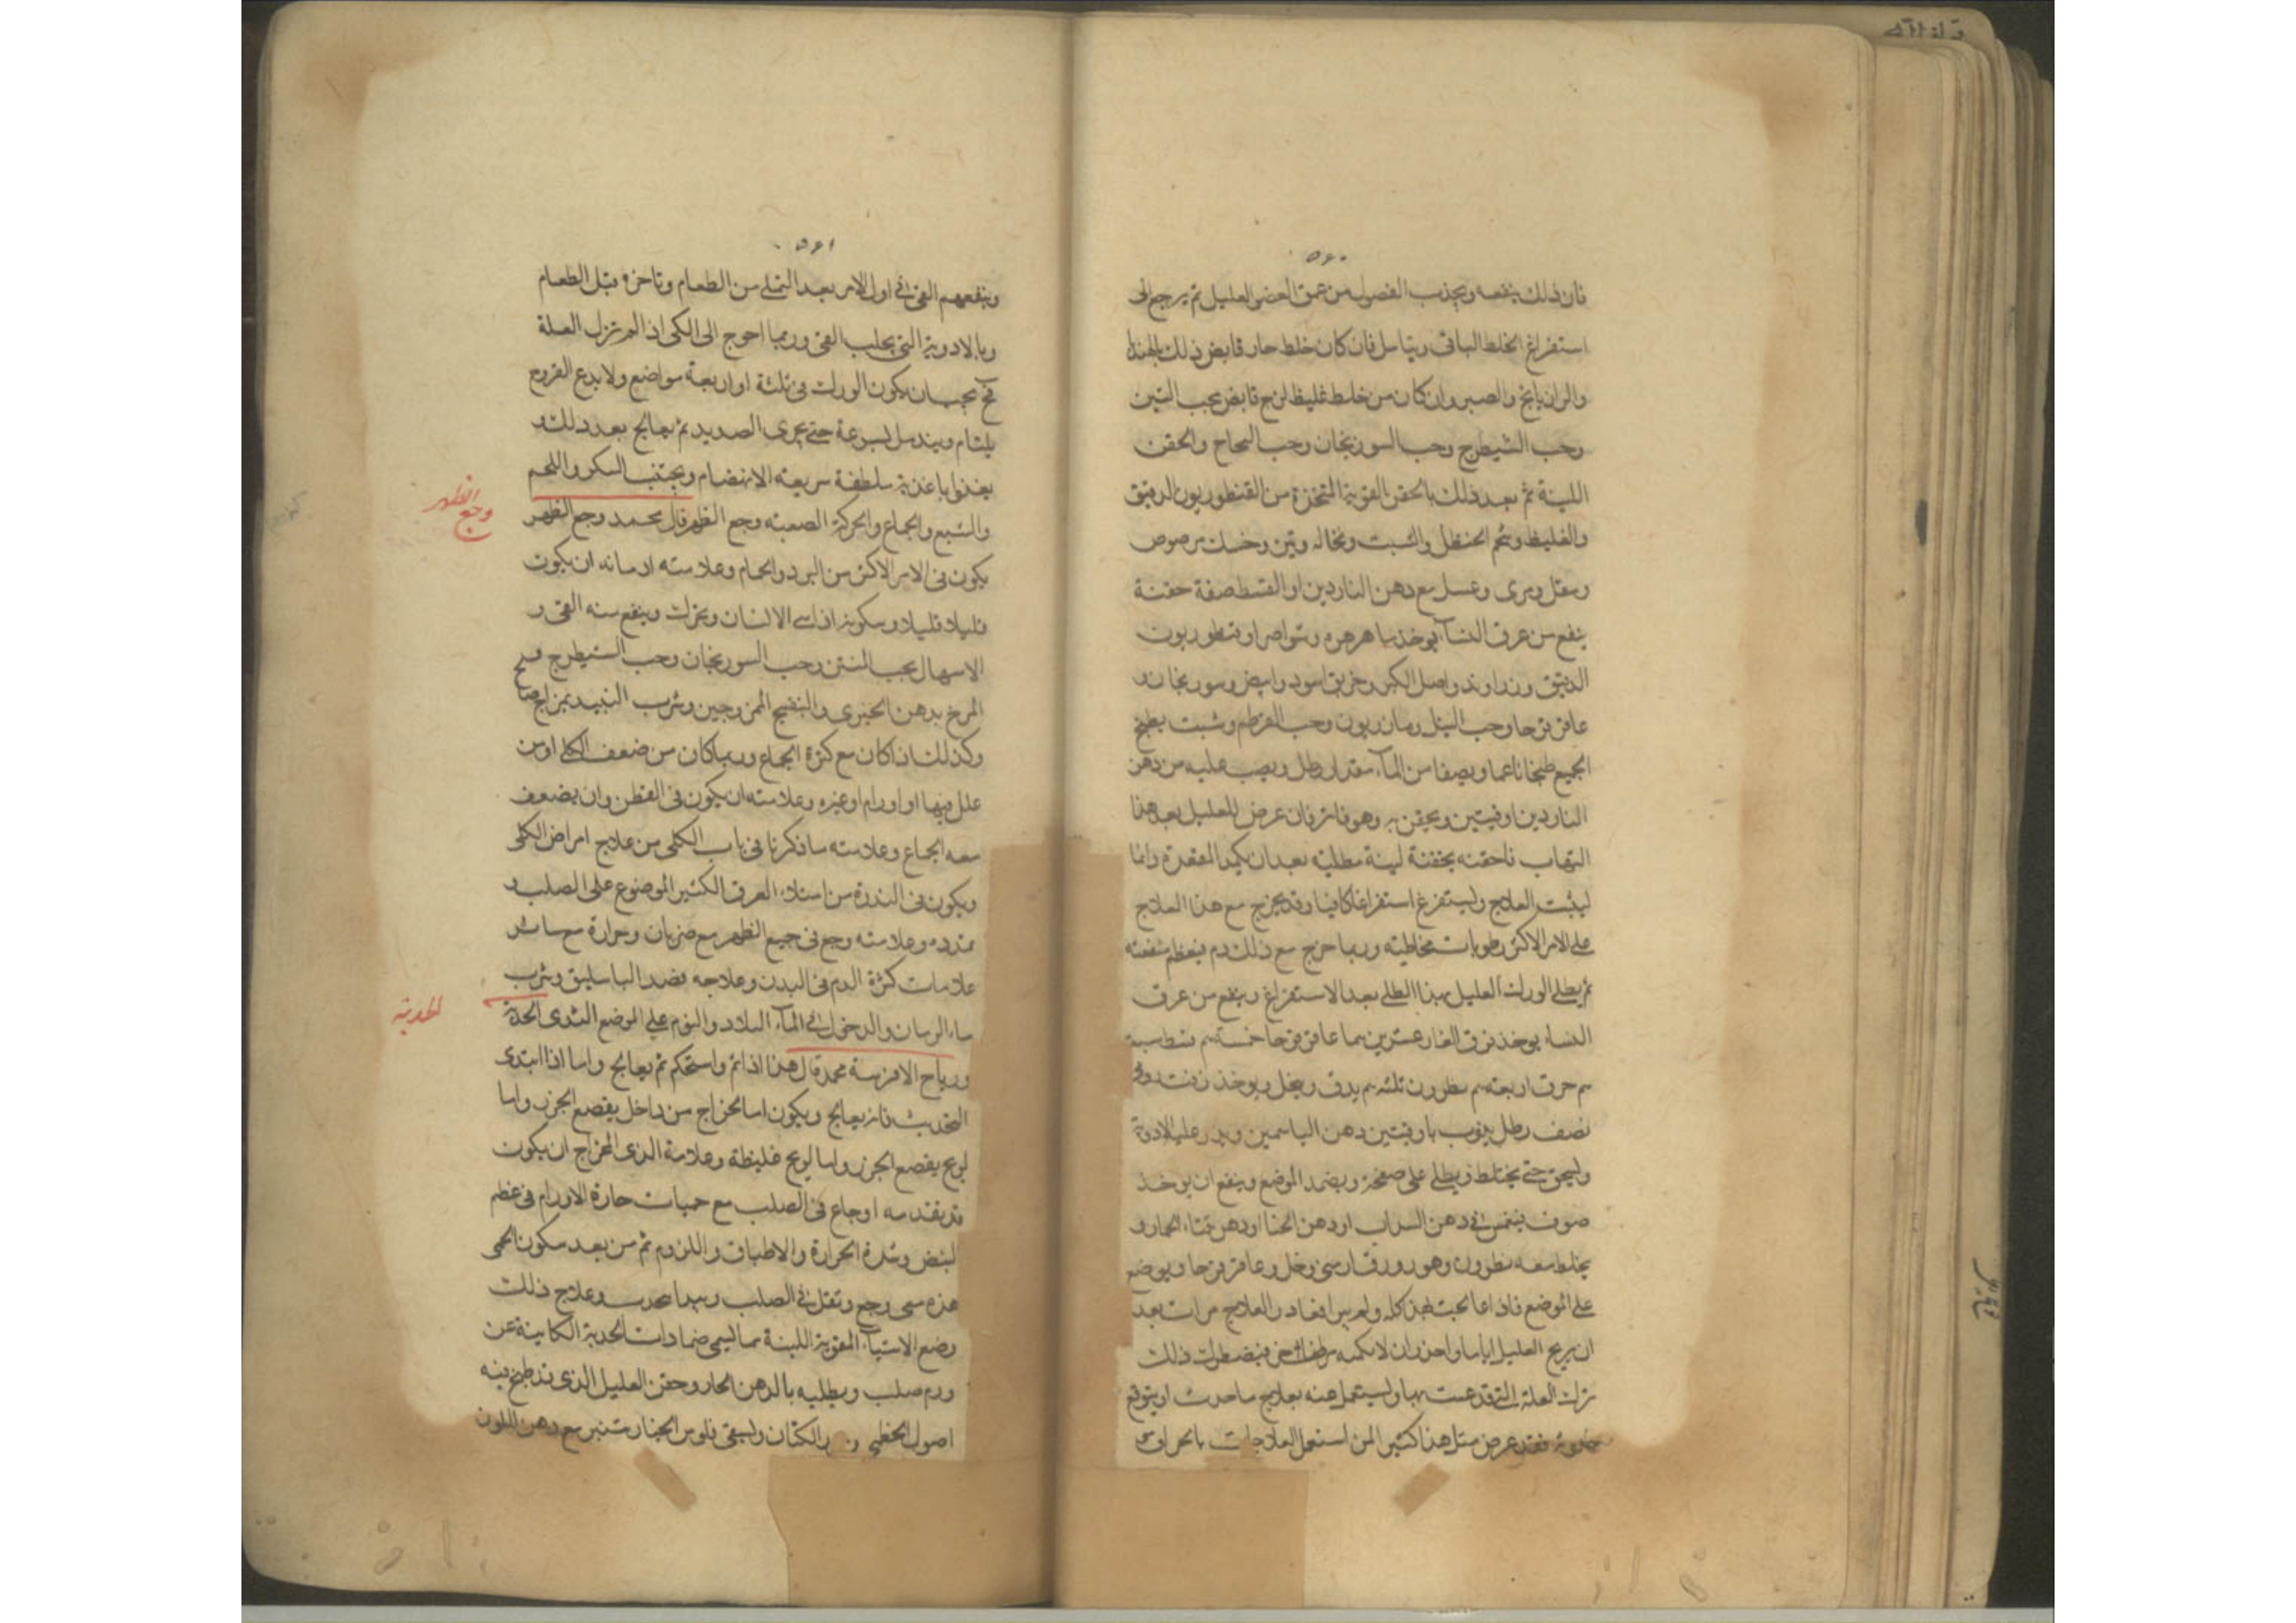 ۵۶۰
فان ذلك ينفعه ويجذب الفضول من عمق العضو العليل ثم يرجع الى
استفراغ الخلط الباقى ويتامل فان كان خلط حار فابض ذلك بالهندبا
والرازيانج والصبر وان كان من خلط غليظ لزج فابض بحب النتن
وحب الشيطرج وحب السورنجان وحب النجاح والحقن
اللينة ثم بعد ذلك بالحقن القوية المتخذة من القنطوريون الدقيق
والغليظ وشحم الحنظل والشبت ونخاله وتين وخسك مرضوض
ومقل ومرى وعسل مع دهن الناردين او القسط صفة حقنة
ينفع من عرق النسآ يوخذ ماهى زهره وقنطوريون
الدقيق وزراوند واصل الكبر وخربق اسود وابيض وسورنجان و
عاقرقرحا وحب النيل ومازريون وحب القرطم وشبت يطبخ
الجميع طبخا ناعما ويصفا من المآء مقدار رطل ويصب عليه من دهن
الناردين اوقيتين ويحقن به وهو فاتر فان عرض للعليل بعد هذا
التهاب فاحقنه بحقنة لينة مطلية بعد ان يكمد المقعدة دائما
ليثبت العلاج وليستفرغ استفراغا كافيا وقد يخرج مع هذا العلاج
على الامر الاكثر رطوبات مخاطية وربما خرج مع ذلك دم فيعظم منفعته
ثم يطلى الورك العليل بهذا الطلى بعد الاستفراغ وينفع من عرق
النساء يوخذ ذرق الفار عشرين ... عاقرقرحا خمسة
حرف اربعة نطرون ثلثة يدق وينخل ويوخذ زفت
نصف رطل يذوب باوقيتين دهن الياسمين ويذر عليه الادوية
وليسحق حتى يختلط ويطلى على صفحة ويضمد الموضع وينفع ان يوخذ
صوف ينغمس فى دهن السداب او دهن الحنا او دهن قثاء الحمار و
يخلط معه نطرون وهو بورق ارمنى وخل وعاقرقرحا ويوضع
على الموضع فاذا عالجت بهذا كله ولم يبرا فعاد العلاج مرات بعد
ان يريح العليل اياما
ترك العلة التى قد عنيت بها وليستعمل عنه بعلاج ما حدث او يتوقع
حدوثه فقد عرض مثل هذا كثيرا لمن استعمل العلاجات
۵۶۱
وينفعهم القى فى اول الامر بعد التملى من الطعام وتاخره قبل الطعام
وبالادوية التى يجلب القى وربما احوج الى الكى اذا لم تزل العلة
فح يجب ان يكون الورك فى ثلثة او اربعة مواضع ولا يدع القروح
يلتئام ويندمل بسرعة حتى يجرى الصديد ثم يعالج بعد ذلك و
يغذوا باغذية ملطفة سريعة الانهضام ويجتنب السكر واللحم
والشبع والجماع والحركة الصعبة وجع الظهر قال محمد وجع الظهر
وجع الظهر
يكون فى الامر الاكثر من البرد والخام وعلامته ادمانه ان يكون
قليلا قليلا وسكونه اذا مشى الانسان وتحرك وينفع منه القى و
الاسهال بحب النتن وحب السورنجان وحب الشيطرج
المرخ بدهن الخيرى والبنفسج الممزوجين وشرب النبيذ
وكذلك اذا كان مع كثرة الجماع وربما كان من ضعف الكلى او من
علل فيها او اورام او غيره وعلامته ان يكون فى القطن وان يضعف
معه الجماع وعلامته ما ذكرنا فى باب الكلى من علاج امراض الكلى
ويكون فى الندرة من امتلاء العرق الكثير الموضوع على الصلب و
تمدده وعلامته وجع فى جميع الظهر مع ضربان وحرارة مع سائر
علامات كثرة الدم فى البدن وعلاجه فصد الباسليق وشرب
ماء الرمان والدخول فى المآء البارد والنوم على الموضع الندى الحدبة
الحدبة
ورياح الافرسة محمد قال هذا اذا تم واستحكم ثم يعالج واما اذا ابتدى
التحديث فانه يعالج ويكون اما لخراج من داخل يقصع الخرز واما
لريح يقصع الخرز واما لريح غليظة وعلامة الذى الخراج ان يكون
قد تقدمه اوجاع فى الصلب مع حميات حارة الاورام فى عظم
لنبض وشدة الحرارة والاطباق واللزوم ثم من بعد سكون الحمى
هذه سحى وجع وثقل فى الصلب ويبدا يتحدب وعلاج ذلك
وضع الاشيآء المقوية اللينة مما يسمى ضمادات الحدبة الكاينة عن
ورم صلب ويطليه بالدهن الحار وحقن العليل الذى قد طبخ فيه
اصول الخطمى وبزر الكتان وليسقى فلوس الخيارشنبر مع دهن اللوز